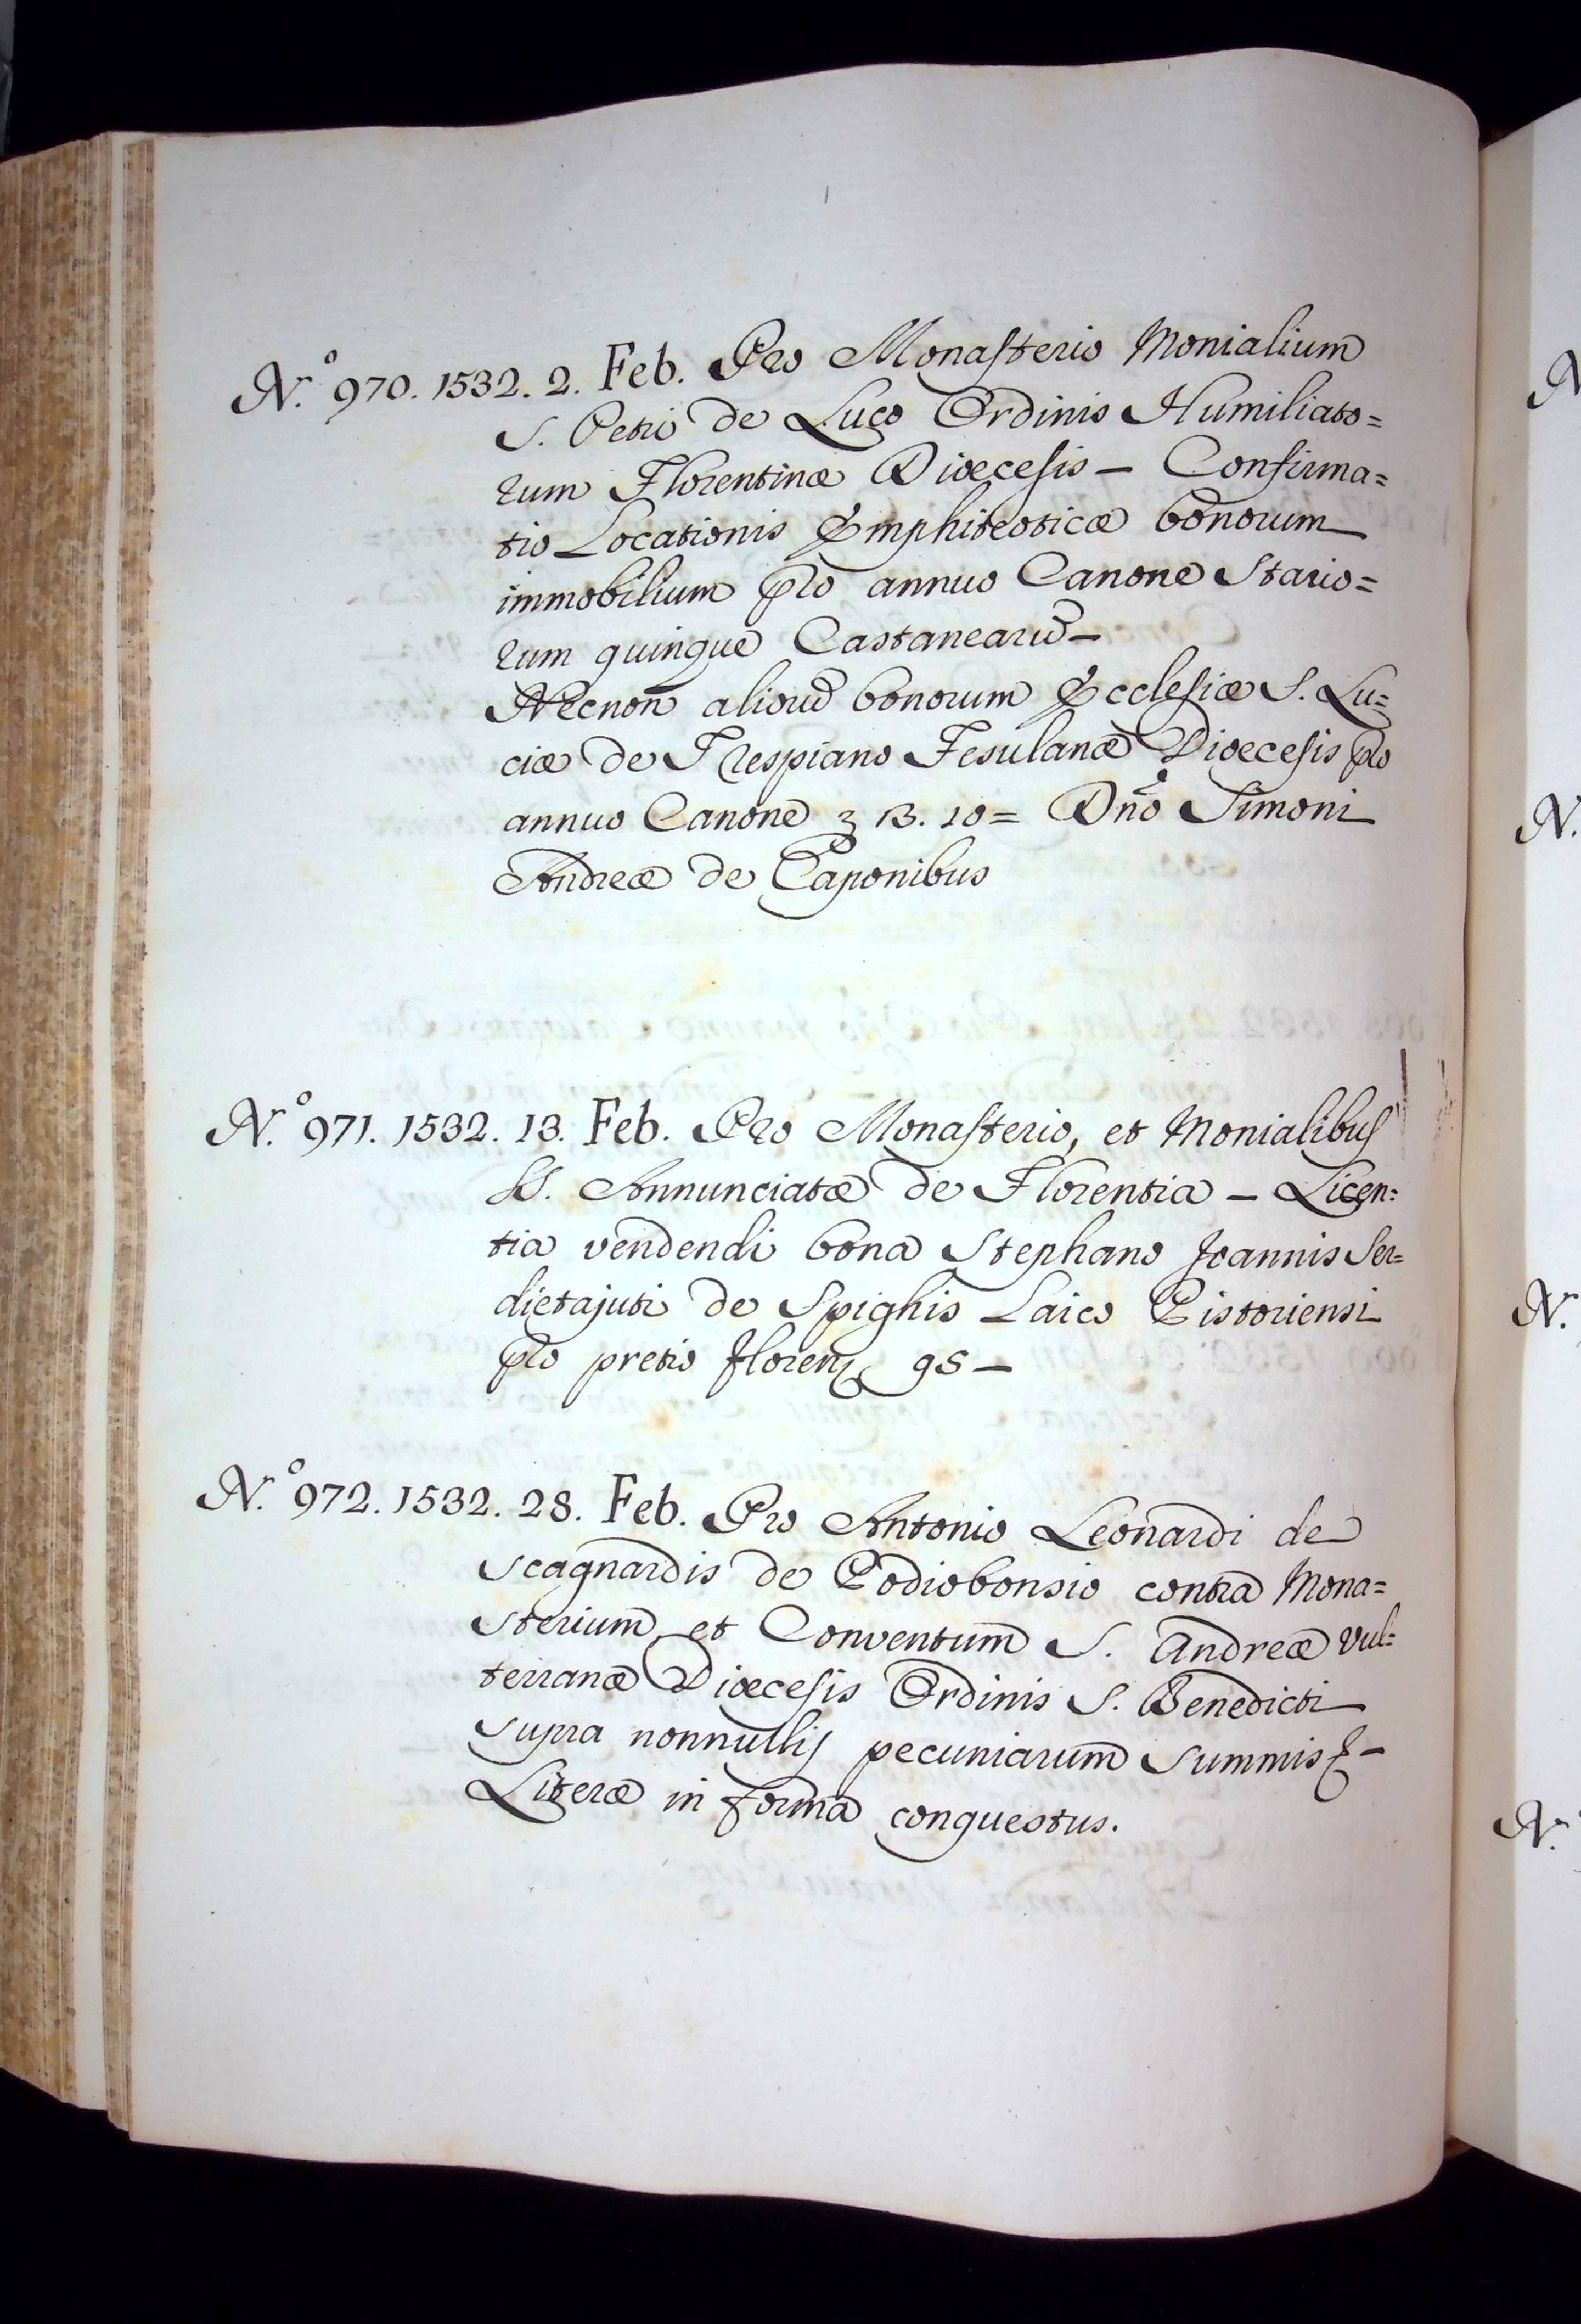 N.º 970. 1532. 2. Feb. Pro Monasterio Monialium
S. Petri de Luco Ordinis Humiliato=
rum Florentinæ Diœcesis — Confirma=
tio Locationis Emphiteoticæ bonorum
immobilium pro annuo Canone Stario=
rum quinque Castanearũ —
Necnon aliorũ bonorum Ecclesiæ S. Lu=
ciæ de Trespiano Fesulanæ Diœcesis pro
annuo Canone 13. 10 = Dño Simoni
Andreæ de Caponibus
N.º 971. 1532. 13. Feb. Pro Monasterio, et Monialibus
SS. Annunciatæ de Florentia — Licen=
tia vendendi bona Stephano Joannis Ser=
dietajuti de Spighis Laico Pistoriensi
pro pretio floren 95 —
N.º 972. 1532. 28. Feb. Pro Antonio Leonardi de
Scagnardis de Podiobonsio contra Mona=
sterium et Conventum S. Andreæ Vul=
terranæ Diœcesis Ordinis S. Benedicti
supra nonnullis pecuniarum summis —
Literæ in forma conquestus.
N
N.
N.
N.